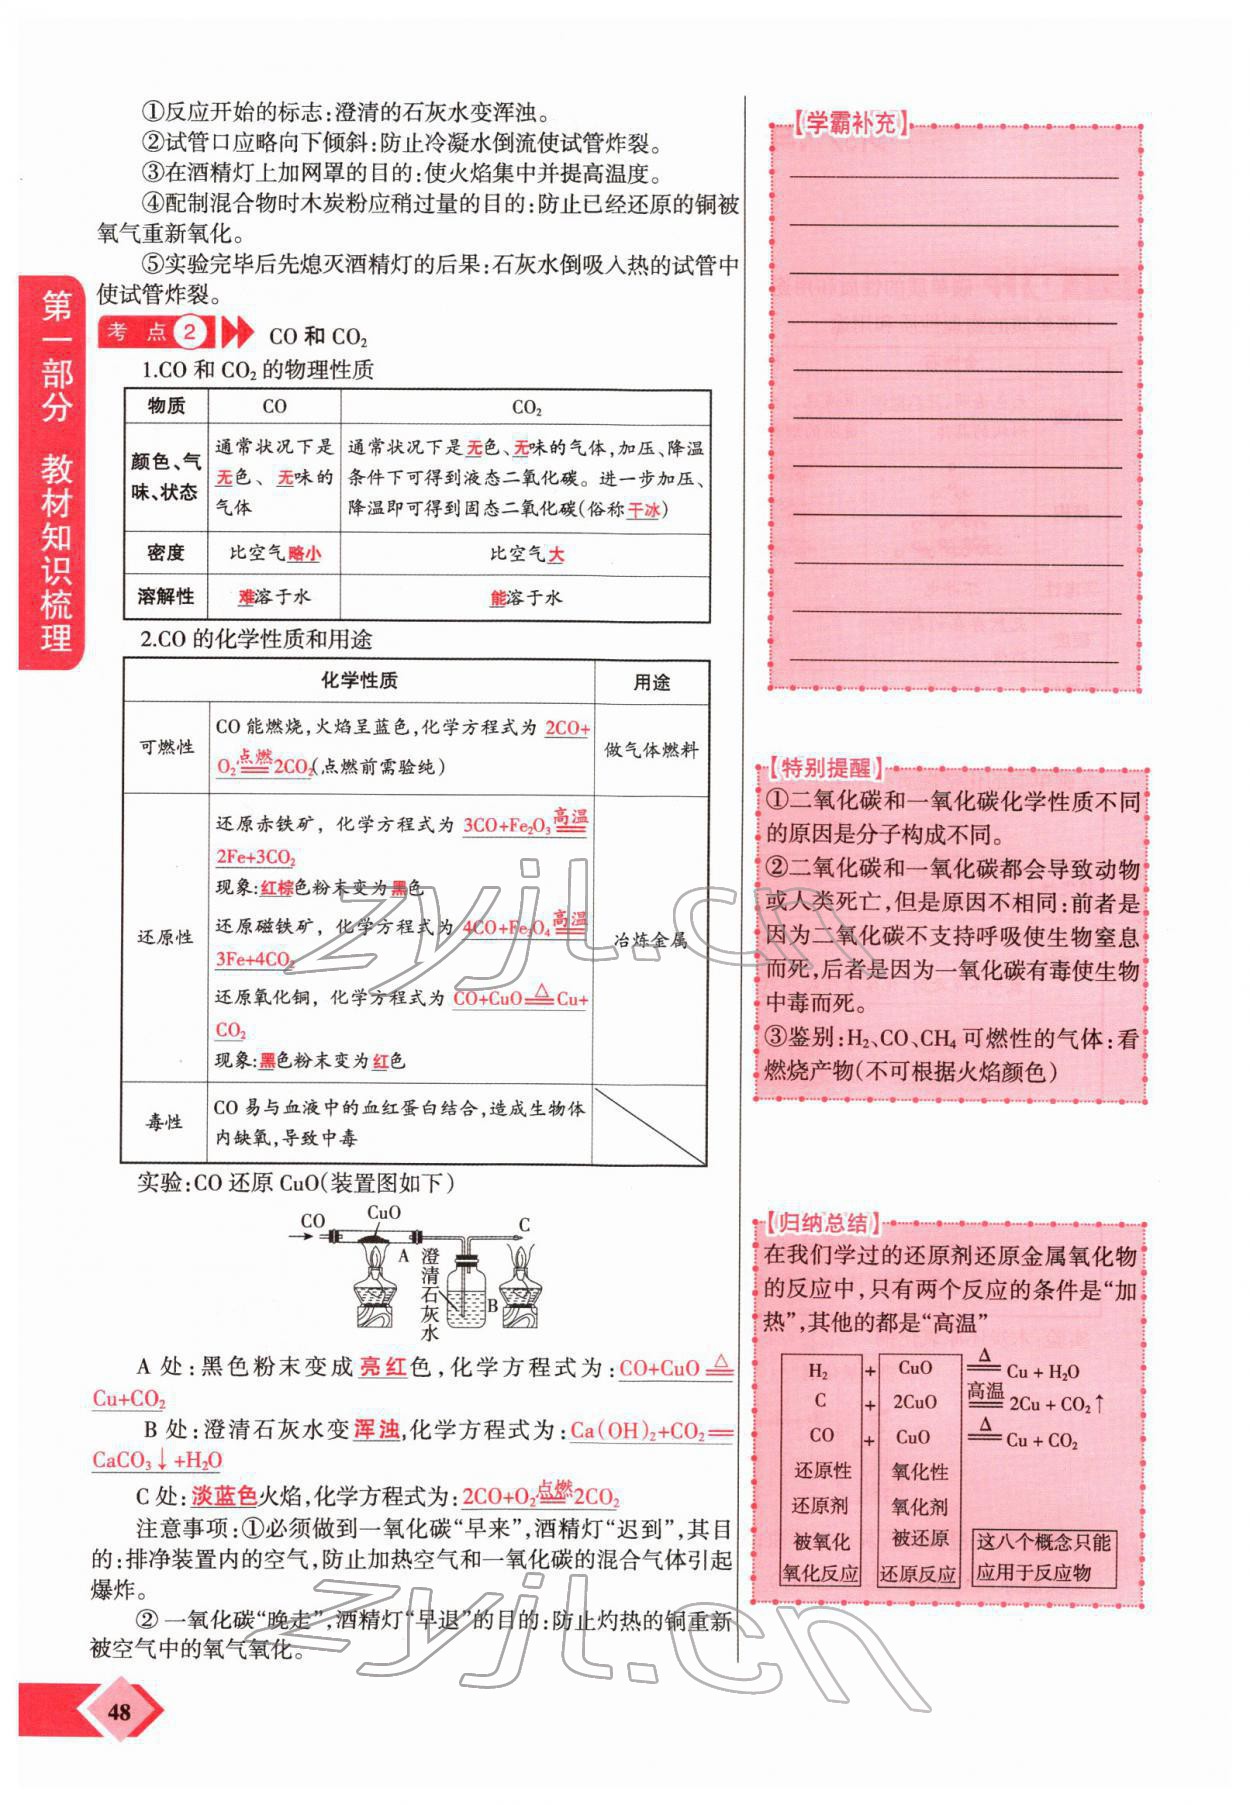 ①反应开始的标志:澄清的石灰水变浑浊。
②试管口应略向下倾斜:防止冷凝水倒流使试管炸裂。
③在酒精灯上加网罩的目的:使火焰集中并提高温度。
④配制混合物时木炭粉应稍过量的目的:防止已经还原的铜被
氧气重新氧化。
⑤实验完毕后先熄灭酒精灯的后果:石灰水倒吸入热的试管中
使试管炸裂。
第一部分 教材知识梳理
考点2 CO 和 CO₂
1.CO 和 CO₂ 的物理性质
物质 CO CO₂
颜色、气味、状态
通常状况下是
无色、无味的
气体
通常状况下是无色、无味的气体,加压、降温
条件下可得到液态二氧化碳。进一步加压、
降温即可得到固态二氧化碳(俗称干冰)
密度 比空气略小 比空气大
溶解性 难溶于水 能溶于水
2.CO 的化学性质和用途
化学性质 用途
可燃性
CO 能燃烧,火焰呈蓝色,化学方程式为 2CO+
O₂ 点燃══ 2CO₂(点燃前需验纯)
做气体燃料
还原性
还原赤铁矿,化学方程式为 3CO+Fe₂O₃ 高温══
2Fe+3CO₂
现象:红棕色粉末变为黑色
还原磁铁矿,化学方程式为 4CO+Fe₃O₄ 高温══
3Fe+4CO₂
还原氧化铜,化学方程式为 CO+CuO △══ Cu+
CO₂
现象:黑色粉末变为红色
冶炼金属
毒性
CO 易与血液中的血红蛋白结合,造成生物体
内缺氧,导致中毒
实验:CO 还原 CuO(装置图如下)
CO CuO A 澄清石灰水 B C
A 处:黑色粉末变成亮红色,化学方程式为:CO+CuO △══
Cu+CO₂
B 处:澄清石灰水变浑浊,化学方程式为:Ca(OH)₂+CO₂══
CaCO₃↓+H₂O
C 处:淡蓝色火焰,化学方程式为:2CO+O₂ 点燃══ 2CO₂
注意事项:①必须做到一氧化碳“早来”,酒精灯“迟到”,其目
的:排净装置内的空气,防止加热空气和一氧化碳的混合气体引起
爆炸。
②一氧化碳“晚走”,酒精灯“早退”的目的:防止灼热的铜重新
被空气中的氧气氧化。
48
【学霸补充】
【特别提醒】
①二氧化碳和一氧化碳化学性质不同
的原因是分子构成不同。
②二氧化碳和一氧化碳都会导致动物
或人类死亡,但是原因不相同:前者是
因为二氧化碳不支持呼吸使生物窒息
而死,后者是因为一氧化碳有毒使生物
中毒而死。
③鉴别:H₂、CO、CH₄ 可燃性的气体:看
燃烧产物(不可根据火焰颜色)
【归纳总结】
在我们学过的还原剂还原金属氧化物
的反应中,只有两个反应的条件是“加
热”,其他的都是“高温”
H₂ + CuO △══ Cu + H₂O
C + 2CuO 高温══ 2Cu + CO₂↑
CO + CuO △══ Cu + CO₂
还原性 氧化性
还原剂 氧化剂
被氧化 被还原
氧化反应 还原反应
这八个概念只能
应用于反应物
zyjl.cn
zyjl.cn